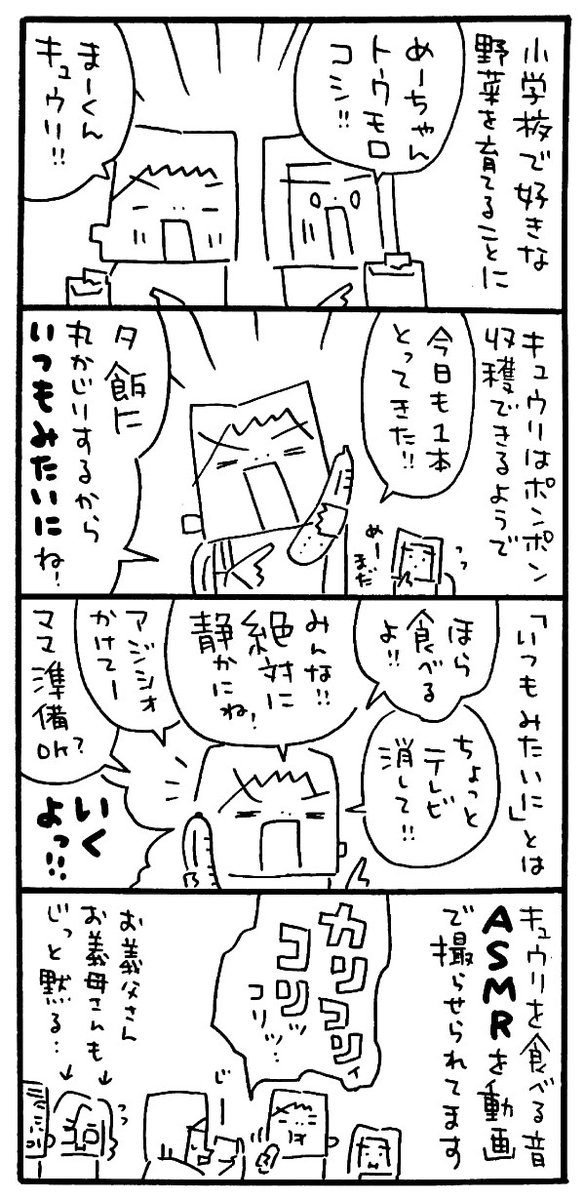 小学校で好きな
野菜を育てることに
めーちゃん
トウモロ
コシ!!
まーくん
キュウリ!!
キュウリはポンポン
収穫できるようで
今日も1本
とってきた!!
めーまだ
夕飯に
丸かじりするから
いつもみたいにね!
「いつもみたいに」とは
ほら
食べる
よ!!
ちょっと
テレビ
消して!!
みんな!!
絶対に
静かにね!
アジシオ
かけてー
ママ準備
OK?
いく
よっ!!
キュウリを食べる音
ASMRを動画
で撮らせられてます
カリコリィ
コリ
コリッ…
じー
お義父さん
お義母さんも
じっと黙る…